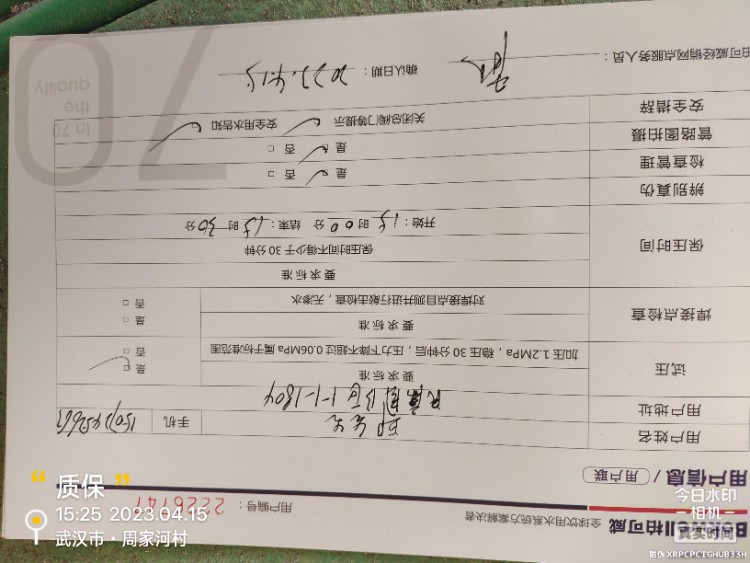 Bo
ll柏可威
全球饮用水系统方案解决者
用户编号：2226147
用户信息 / 用户联
用户姓名
手机
用户地址 1-1-1804
试压
要求标准
是 □
加压1.2MPa，稳压30分钟后，压力下降不超过0.06MPa属于标准范围
否 □
焊接点检查
要求标准
是 □
对焊接点目测并进行敲击检查，无渗水
否 □
保压时间
要求标准
保压时间不得少于30分钟
开始：15时00分 结束：15时30分
辨别真伪
检查管理 是 否 □
管路图拍摄 是 否 □
安全措辞 关闭总阀门等提示 安全用水告知
柏可威经销网点服务人员：
确认日期：2023.4.15
In 70
the
quality
70
“ 质保 ”
15:25 2023.04.15
武汉市·周家河村
今日水印
相机
真实时间
防伪 XRPCPCTGHUB33H